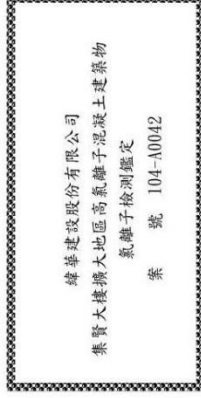 緯華建設股份有限公司
集賢大樓擴大地區高氯離子混凝土建築物
氯離子檢測鑑定
案 號 104-A0042